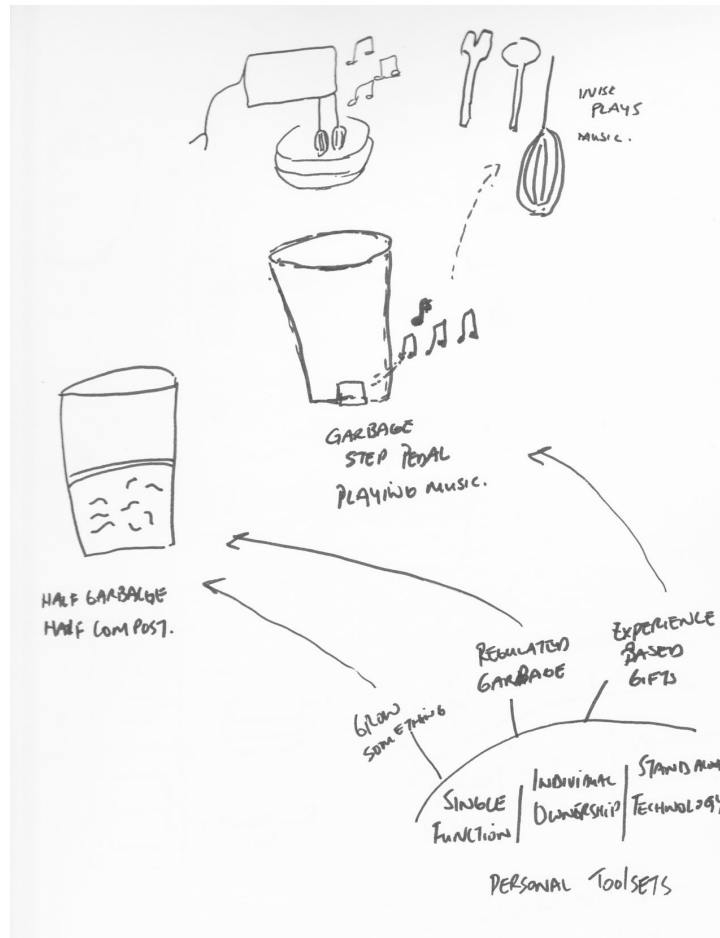 PLAYS
MUSIC.
GARBAGE
STEP PEDAL
PLAYING MUSIC.
HALF GARBALGE
HALF COMPOST.
GROW
SOMETHING
REGULATED
GARBAGE
EXPERIENCE
BASED
GIFTS
SINGLE
FUNCTION
INDIVIDUAL
OWNERSHIP
STANDALONE
TECHNOLOGY
PERSONAL TOOLSETS